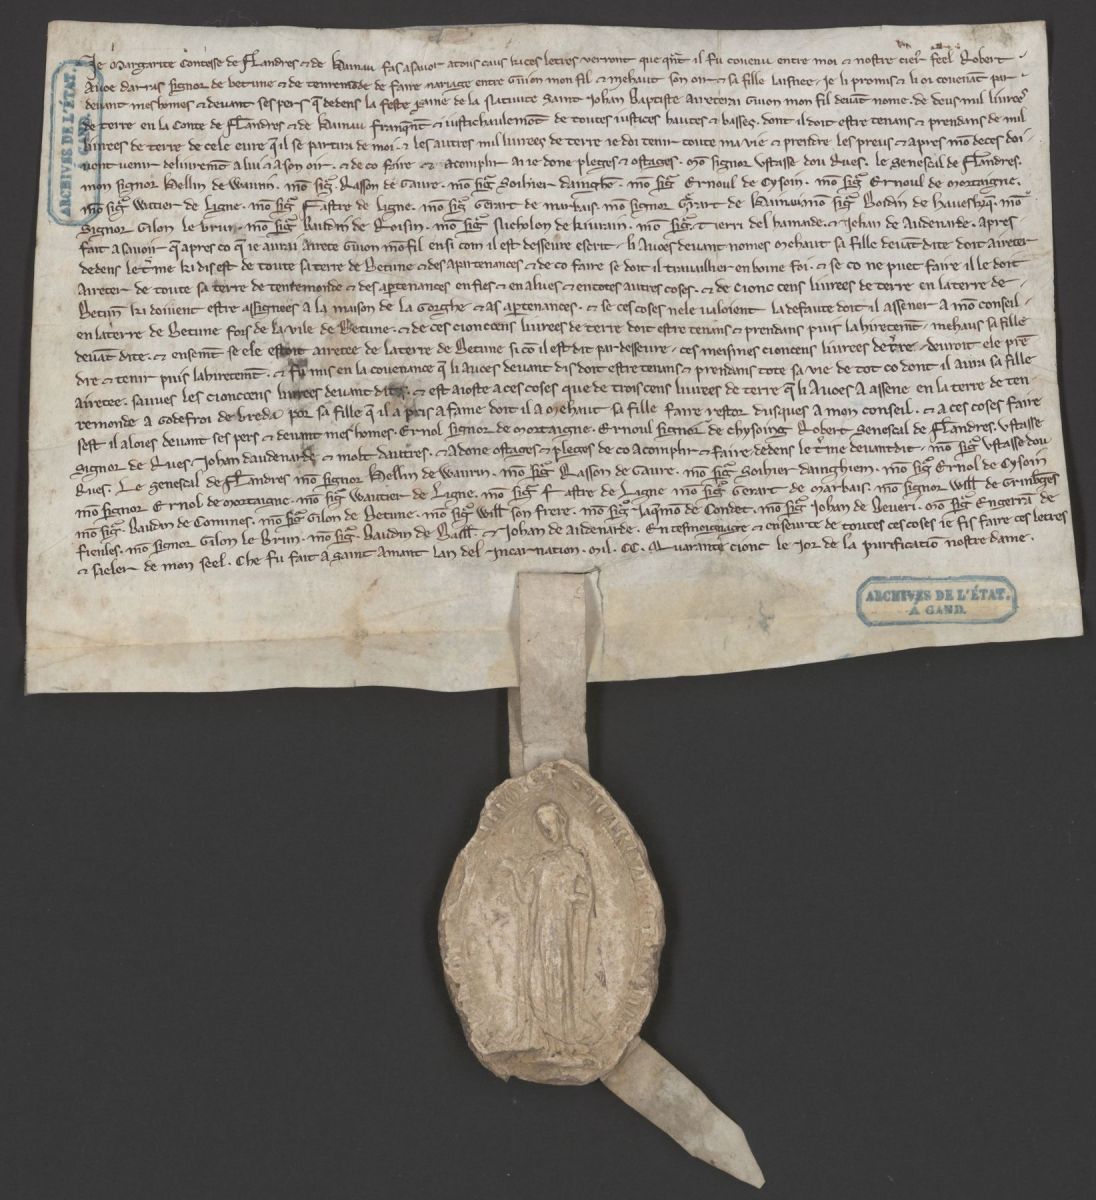 Je Margarite Contesse de Flandres ⁊ de Hainau fas asavoir atous caus ki ces letres verront que qnt il fu covenu entre moi ⁊ nostre cier feel Robert
Avoe darras signor de betune ⁊ de tenremode de faire mariage entre Guion mon fil ⁊ mehaut son oir ⁊ sa fille laisnee. Je li promis ⁊ li oi covenat par
devant mes homes ⁊ devant ses pers q dedens la feste de la nativite saint Johan Baptiste aireterai Guion mon fil devat nome. de deus mil livrees
de terre en la Conte de Flandres ⁊ de Hainau ⁊ de toutes iustices hautes ⁊ basses. dont il doit estre tenans ⁊ prendans de mil
livrees de terre de cele eure q il se partira de moi. ⁊ les autres mil livrees de terre ie doi tenir toute ma vie ⁊ prendre les preus ⁊ apres mo deces doi-
vent venir delivremt a lui ⁊ a son oir. ⁊ de co faire ⁊ acomplir ai ie done pleges ⁊ ostages. mo signor Ustasse dou Rues. le senescal de Flandres.
mon signor Hellin de Waurin. mo sigr Rasson de Gaure. mo sigr Sohier dainghe. mo sigr Ernoul de Cysoin. mo sigr Ernoul de mortaigne.
mo sigr Watier de Ligne. mo sigr Fastre de Ligne. mo sigr Gerart de markais. mo signor Gerart de Hainau. mo sigr Bodin de haveskrq. mo
signor Gilon le brun. mo sigr Baudin de Roisin. mo sigr Nicholon de kivrain. mo sigr Tierri del hamaide. ⁊ Jehan de Audenarde. Apres
fait asavoir q apres co q ie aurai airete Guion mo fil ensi com il est desseure escrit. li Avoes devant nomes mehaut sa fille devat dite doit aireter
dedens le tme ki dis est de toute sa terre de Betune ⁊ des apartenances ⁊ de co faire se doit il travaillier en boine foi. ⁊ se co ne puet faire il le doit
aireter de toute sa terre de tenremonde ⁊ des aptenances en fies ⁊ en alues ⁊ en totes autres coses. ⁊ de cionc cens livrees de terre en la terre de
Betun ki doivent estre assignees a la maison de la Gorghe ⁊ as aptenances. ⁊ se ces coses ne le valoient la defaute doit il assener a mo conseil.
en la terre de Betune fors de la vile de Betune. ⁊ de ces cionccens livrees de terre doit estre tenans ⁊ prendans puis lahiretemt. mehaus sa fille
devat dite. ⁊ ensemt se ele estoit airetee de la terre de Betune si co il est dit par desseure. ces meismes cioncens livrees de tre devroit ele pre
dre ⁊ tenir puis lahiretemt. ⁊ fu mis en la covenance q li Avoes devant dis doit estre tenans ⁊ prendans tote sa vie de tot co dont il aura sa fille
airetee. sauves les cionccens livrees devant dites. ⁊ est aioste a ces coses que de trois cens livrees de terre q li Avoes a assene en la terre de ten
remonde a Godefroi de breda por sa fille q il a pris a fame doit il a mehaut sa fille faire restor dusques a mon conseil. ⁊ a ces coses faire
sest il aloies devant ses pers ⁊ devant mes homes. Ernol signor de mortaigne. Ernoul signor de chysoing Robert senescal de Flandres. Ustasse
signor de Rues. Johan daudenarde ⁊ molt dautres. ⁊ a done ostages ⁊ pleges de co acomplir ⁊ faire dedens le tme devantdit. mo sigr Ustasse dou
Rues. Le senescal de Flandres mo signor Hellin de Waurin. mo sigr Rasson de Gaure. mo sigr Sohier dainghien. mo sigr Ernol de Cysoin
mo signor Ernol de mortaigne. mo sigr Wautier de Ligne. mo sigr Fastre de Ligne mo sigr Gerart de Marbais. mo signor Will de Grimbges
mo sigr Baudin de Comines. mo sigr Gilon de Betune. mo sigr Will son frere. mo sigr de Condet. mo sigr Johan de Beveri. mo sigr Engerra de
fieules. mo signor Gilon le Brun. mo sigr Baudin de Baill. ⁊ Johan de Audenarde. En tesmoignage ⁊ en seurte de toutes ces coses ie fis faire ces letres
⁊ sieler de mon seel. Che fu fait a Saint Amant lan del Incarnation. Mil. CC. Quarante cionc le Jor de la purificatio nostre dame.
ARCHIVES DE L'ÉTAT.
À GAND.
ARCHIVES DE L'ÉTAT.
À GAND.